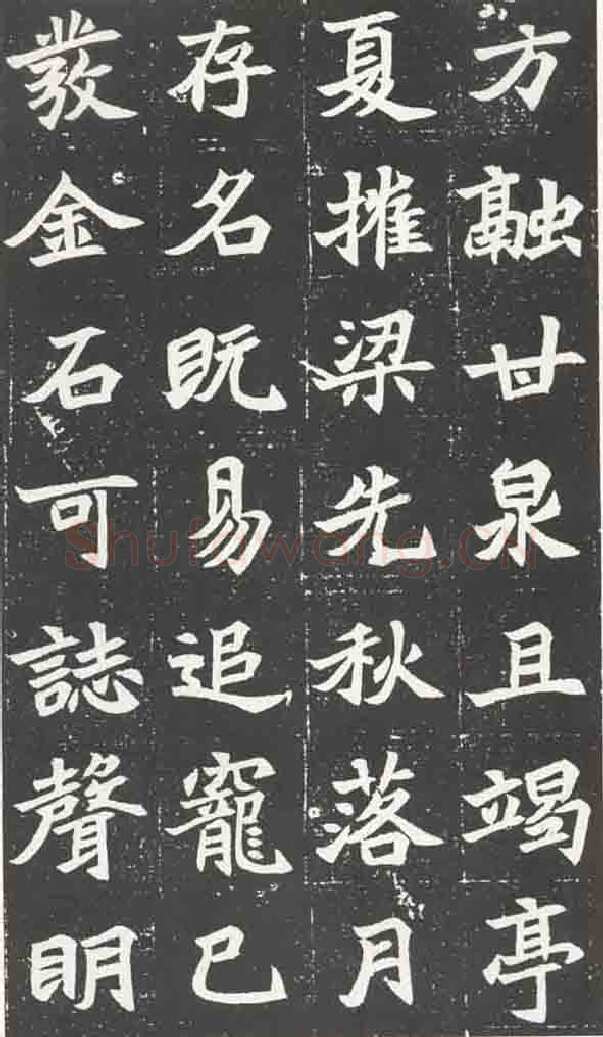 方融甘泉且竭亭
夏摧梁先秋落月
存名既易追寵已
發金石可誌聲明
Shufawang.CN